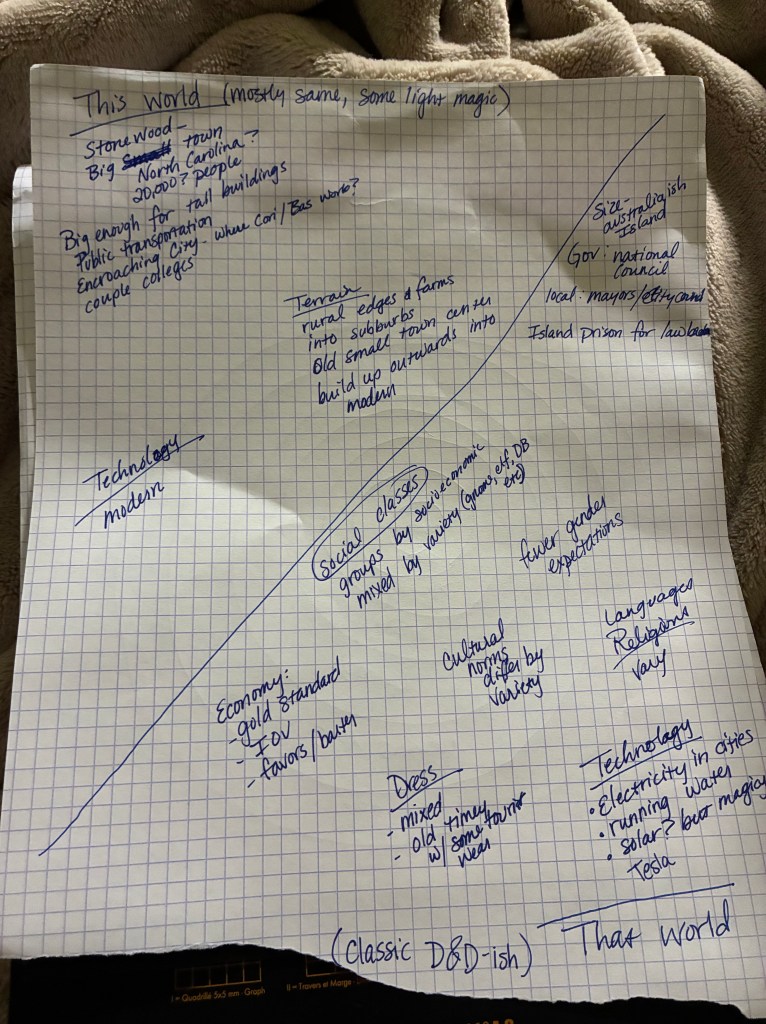 This World (mostly same, some light magic)
Stonewood -
Big town
North Carolina?
20,000? people
Big enough for tall buildings
Public transportation
Encroaching City - where Cori/Bas work?
couple colleges
Terrain
rural edges & farms
into subburbs
Old small town center
build up outwards into
modern
Technology
modern
Size -
australia ish
Island
Gov: national
Council
local: mayors/city
Island prison for
social classes
groups by socioeconomic
mixed by variety (gnome, elf, DB
etc)
fewer gender
expectations
Economy:
- gold standard
- IOU
- favors/barter
Cultural
norms
differ by
variety
Languages
Religions
vary
Dress
- mixed
- old timey
w/ some tourist
wear
Technology
• Electricity in cities
• running water
• solar? but magicy
Tesla
(Classic D&D-ish) That World
I - Quadrillé 5x5 mm - Graph
II - Travers et Marge -